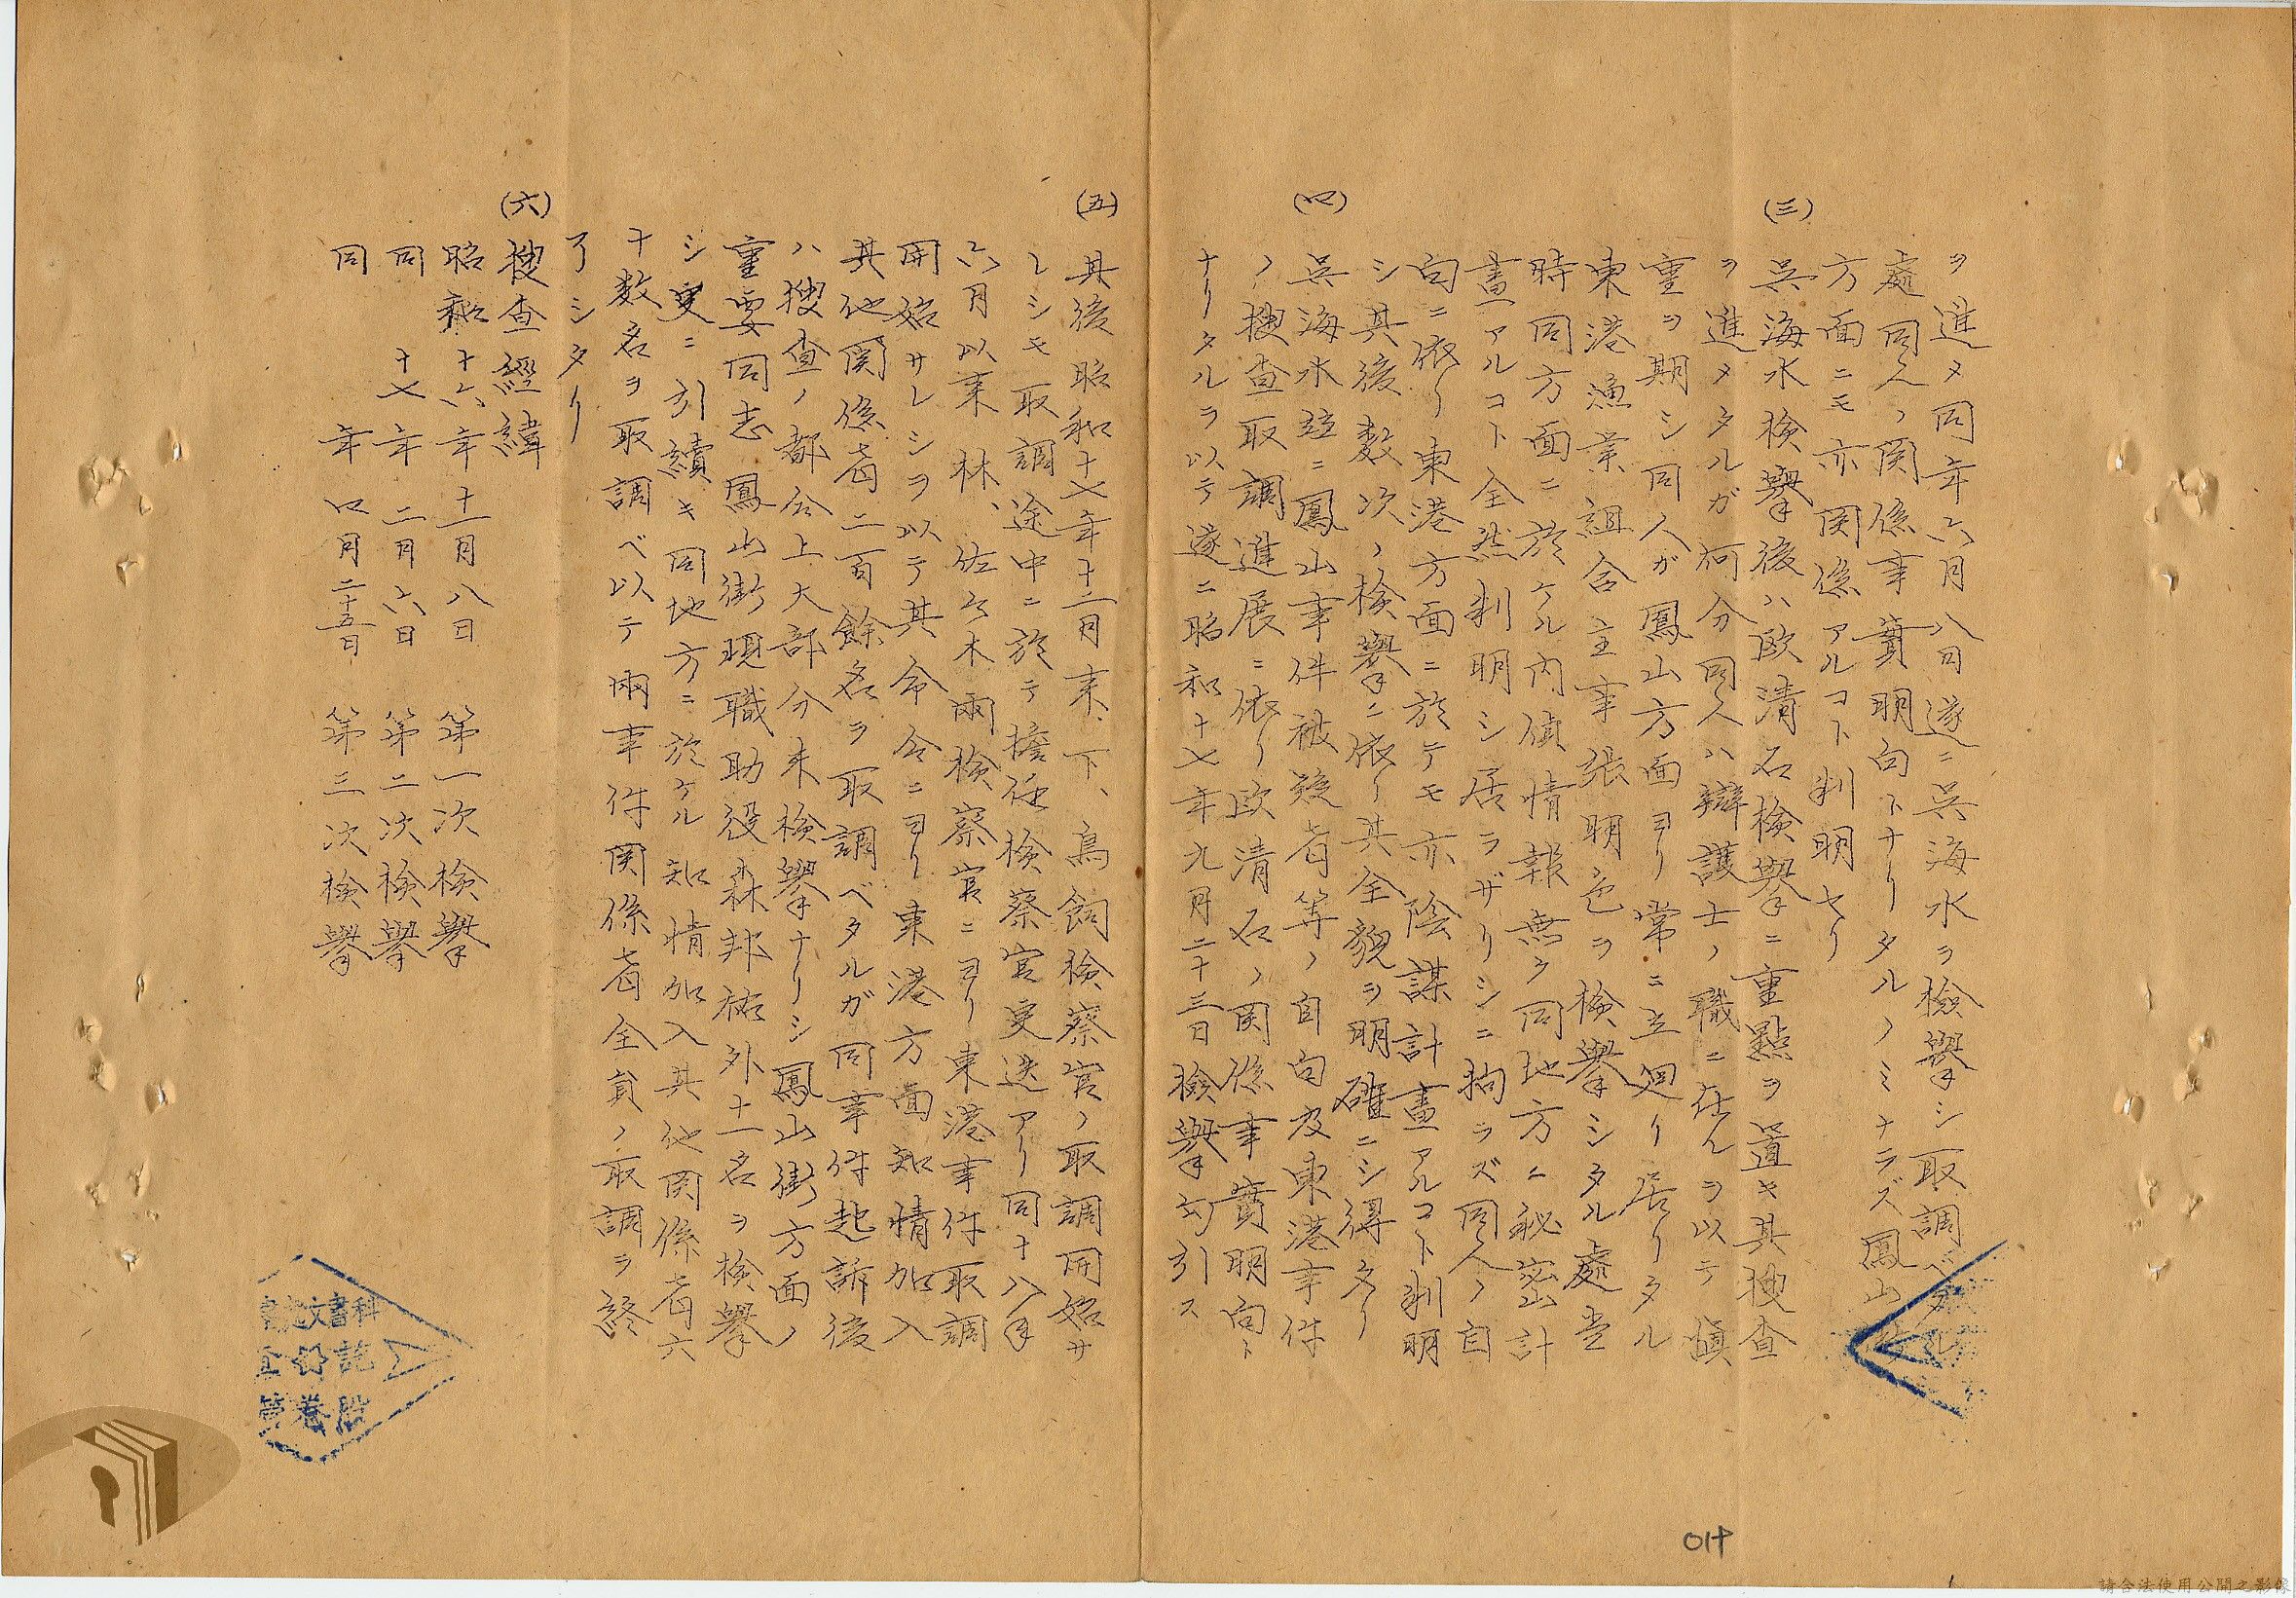 ヲ進メ同年六月八日遂ニ呉海水ヲ檢擧シ取調ベタル
處同人ノ関係事實明白トナリタルノミナラズ鳳山街
方面ニモ亦関係アルコト判明セリ
(三) 呉海水検擧後ハ欧清石検擧ニ重點ヲ置キ其捜査
ヲ進メタルガ何分同人ハ辯護士ノ職ニ在ルヲ以テ慎
重ヲ期シ同人ガ鳳山方面ヨリ常ニ立廻リ居リタル
東港漁業組合主事張明色ヲ検擧シタル處当
時同方面ニ於ケル内偵情報無ク同地方ニ秘密計
畫アルコト全然判明シ居ラザリシニ拘ラズ同人ノ自
白ニ依リ東港方面ニ於テモ亦陰謀計畫アルコト判明
シ其後数次ノ検擧ニ依リ其全貌ヲ明確ニシ得タリ
(四) 呉海水竝ニ鳳山事件被疑者等ノ自白及東港事件
ノ捜査取調進展ニ依リ欧清石ノ関係事實明白ト
ナリタルヲ以テ遂ニ昭和十七年九月二十三日検擧勾引ス
(五) 其後昭和十七年十二月末、下、鳥飼検察官ノ取調開始サ
レシモ取調途中ニ於テ擔任検察官更迭アリ同十八年
六月以来林、佐々木兩検察官ニヨリ東港事件取調
開始サレシヲ以テ其命令ニヨリ東港方面知情加入
其他関係者二百餘名ヲ取調ベタルガ同事件起訴後
ハ捜査ノ都合上大部分未検擧ナリシ鳳山街方面ノ
重要同志鳳山街現職助役森邦祐外十一名ヲ検擧
シ更ニ引續キ同地方ニ於ケル知情加入其他関係者六
十数名ヲ取調ベ以テ兩事件関係者全員ノ取調ヲ終
了シタリ
(六) 捜査經緯
昭和十六年十一月八日 第一次検擧
同 十七年 二月六日 第二次検擧
同 年 四月二十五日 第三次検擧
文書科
014
請合法使用公開之影像